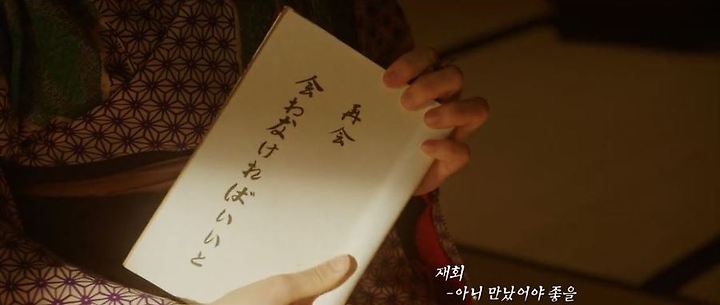 再会
会わなければいいと
재회
-아니 만났어야 좋을